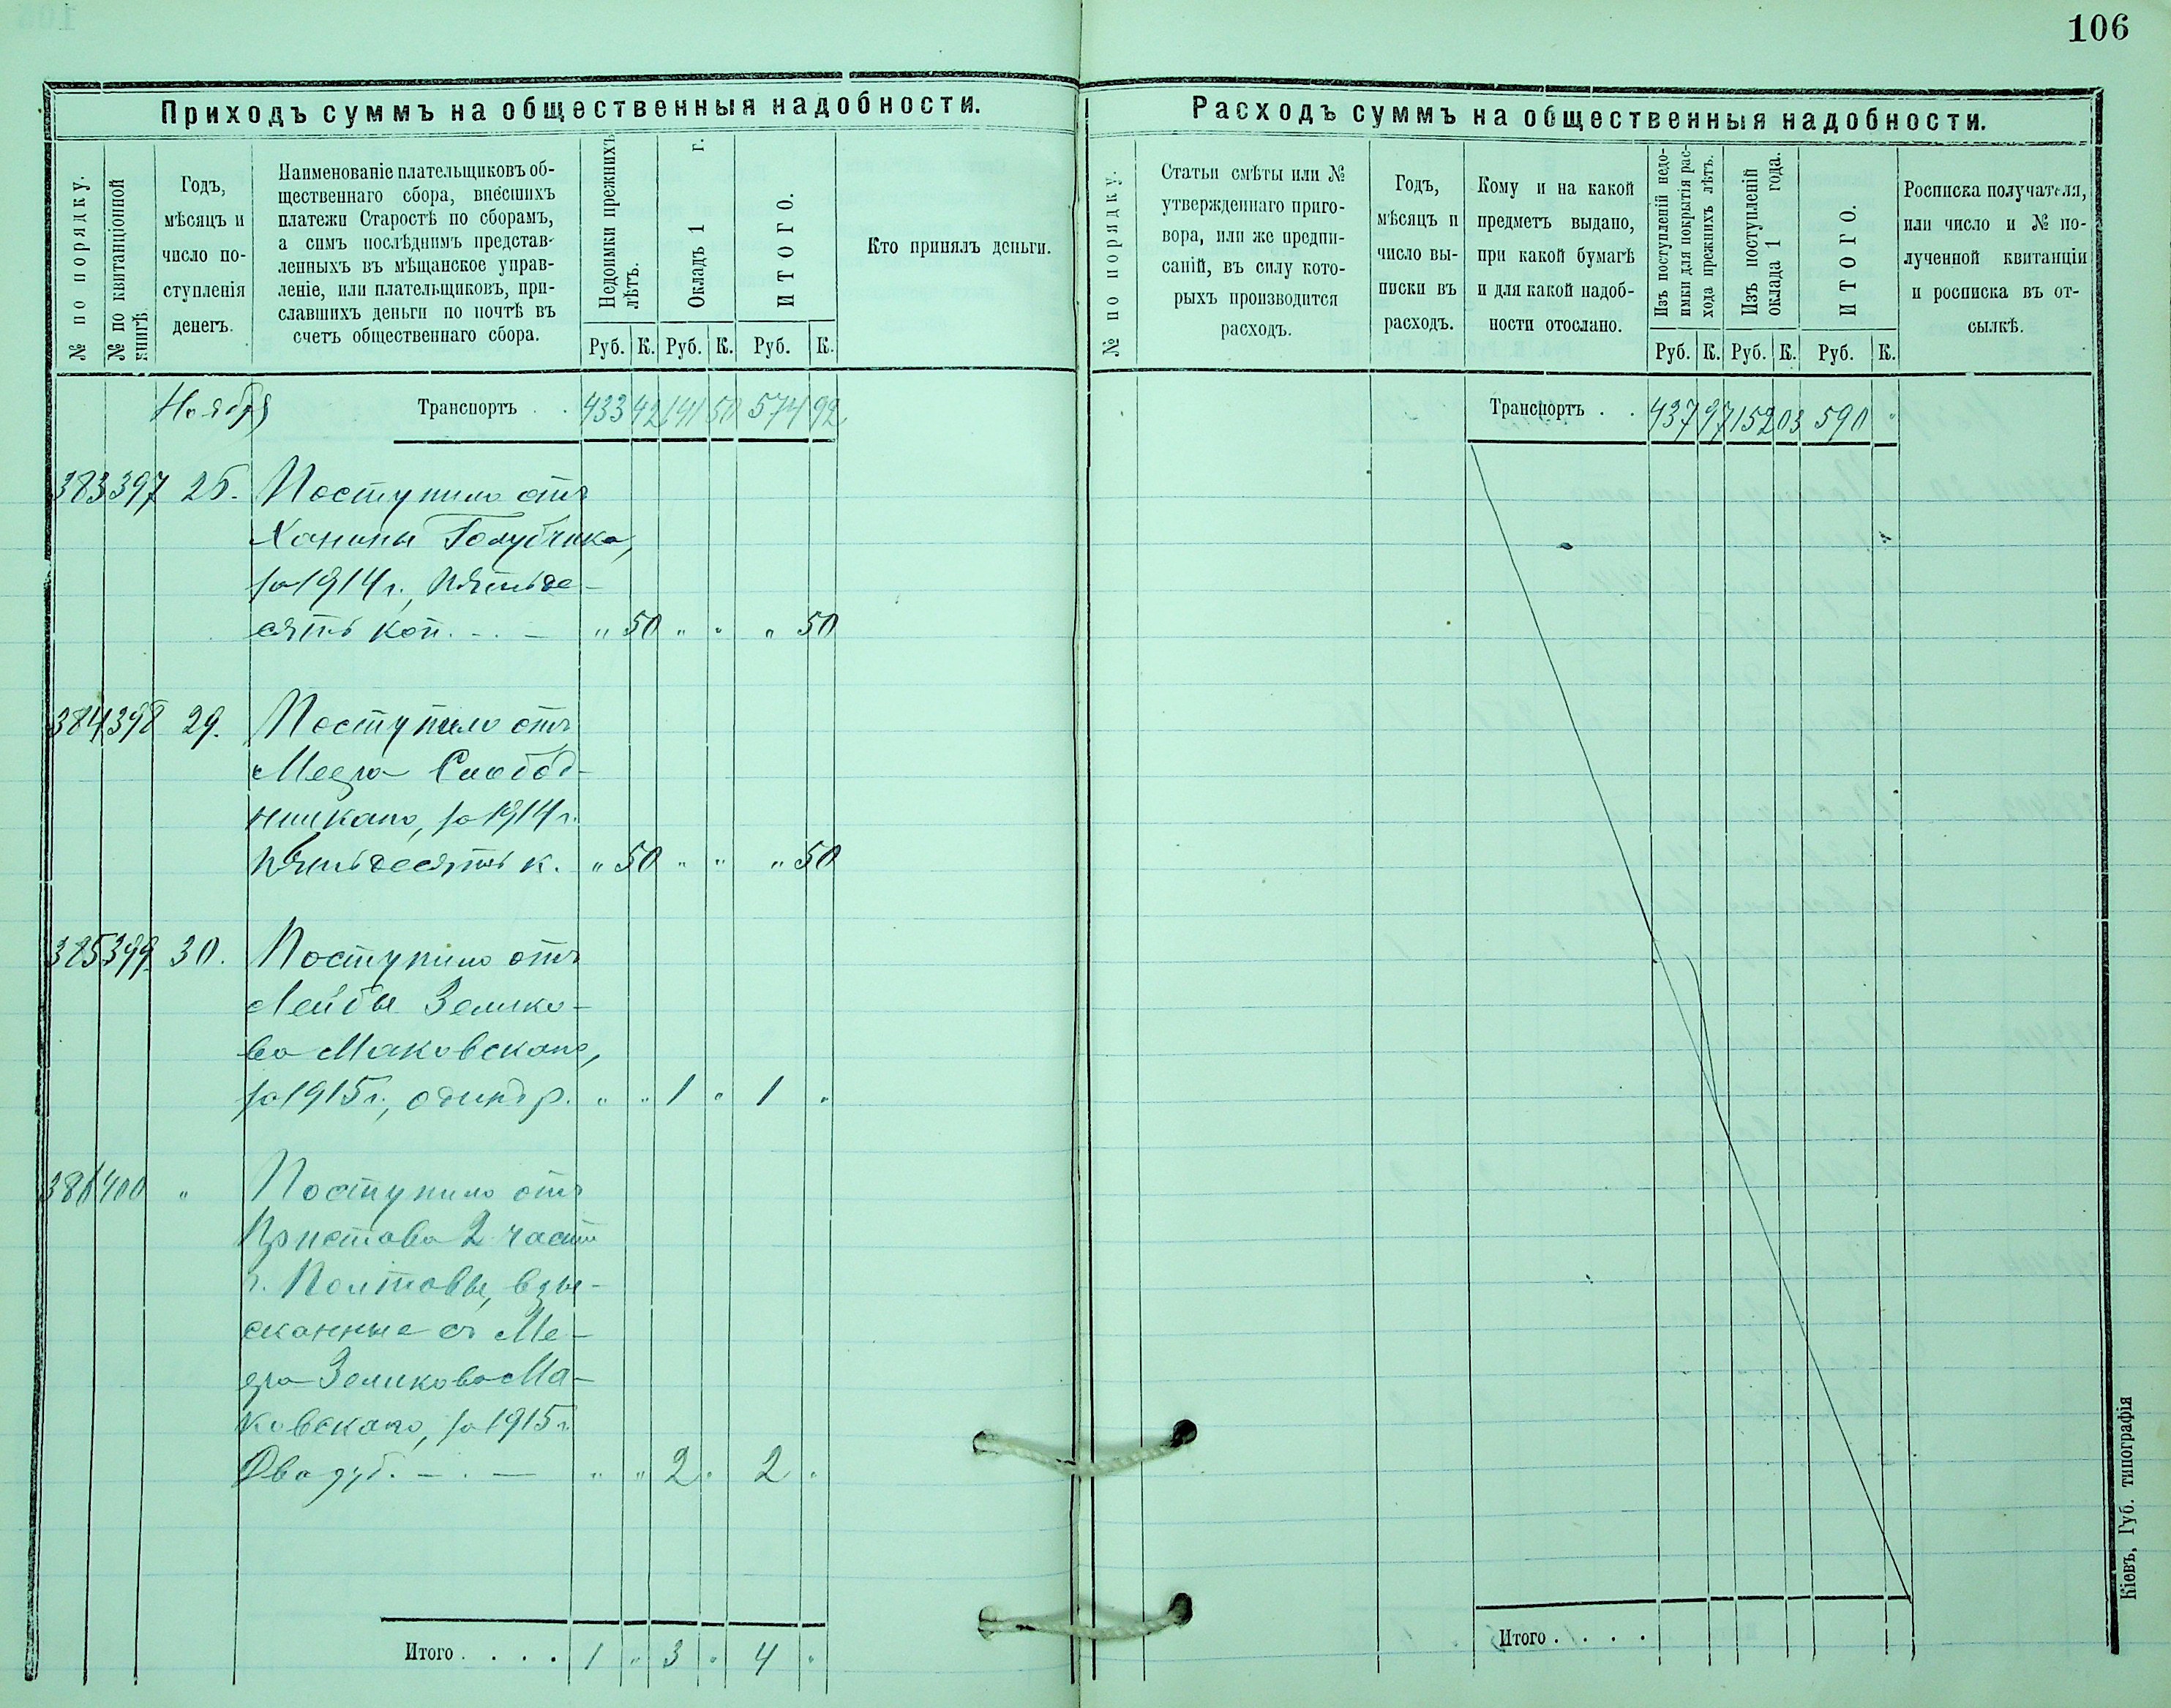 106
Приходъ суммъ на общественныя надобности.
№ по порядку.
№ по квитанціонной
книгѣ.
Годъ,
мѣсяцъ и
число по-
ступленія
денегъ.
Наименованіе плательщиковъ об-
щественнаго сбора, внесшихъ
платежи Старостѣ по сборамъ,
а симъ послѣднимъ представ-
ленныхъ въ мѣщанское управ-
леніе, или плательщиковъ, при-
славшихъ деньги по почтѣ въ
счетъ общественнаго сбора.
Недоимки прежнихъ
лѣтъ.
Окладъ 1 г.
ИТОГО.
Руб. К. Руб. К. Руб. К.
Кто принялъ деньги.
Ноября Транспортъ . . 433 42 141 50 574 92
383 397 25. Поступило отъ
Ханины Голубчика,
за 1914 г., пятьде-
сятъ коп. - . - " 50 " " " 50
384 398 29. Поступило отъ
Меера Слобод-
, за 1914 г.
пятьдесятъ к. " 50 " " " 50
385 399 30. Поступило отъ
Лейбы Зелико-
ва Маковскаго,
за 1915 г., одинъ р. " " 1 " 1 "
386 400 " Поступило отъ
Пристава 2 части
г. Полтавы, взы-
сканные съ Ме-
ера Зеликова Ма-
ковскаго, за 1915 г.
Два руб. - . - " " 2 " 2 "
Итого . . . . 1 " 3 " 4 "
Расходъ суммъ на общественныя надобности.
№ по порядку.
Статьи смѣты или №
утвержденнаго приго-
вора, или же предпи-
саній, въ силу кото-
рыхъ производится
расходъ.
Годъ,
мѣсяцъ и
число вы-
писки въ
расходъ.
Кому и на какой
предметъ выдано,
при какой бумагѣ
и для какой надоб-
ности отослано.
Изъ поступленій недо-
имки для покрытія рас-
хода прежнихъ лѣтъ.
Изъ поступленій
оклада 1 года.
ИТОГО.
Руб. К. Руб. К. Руб. К.
Росписка получателя,
или число и № по-
лученной квитанціи
и росписка въ от-
сылкѣ.
Транспортъ . . 437 97 152 03 590 "
Итого . . . .
Кіевъ, Губ. типографія